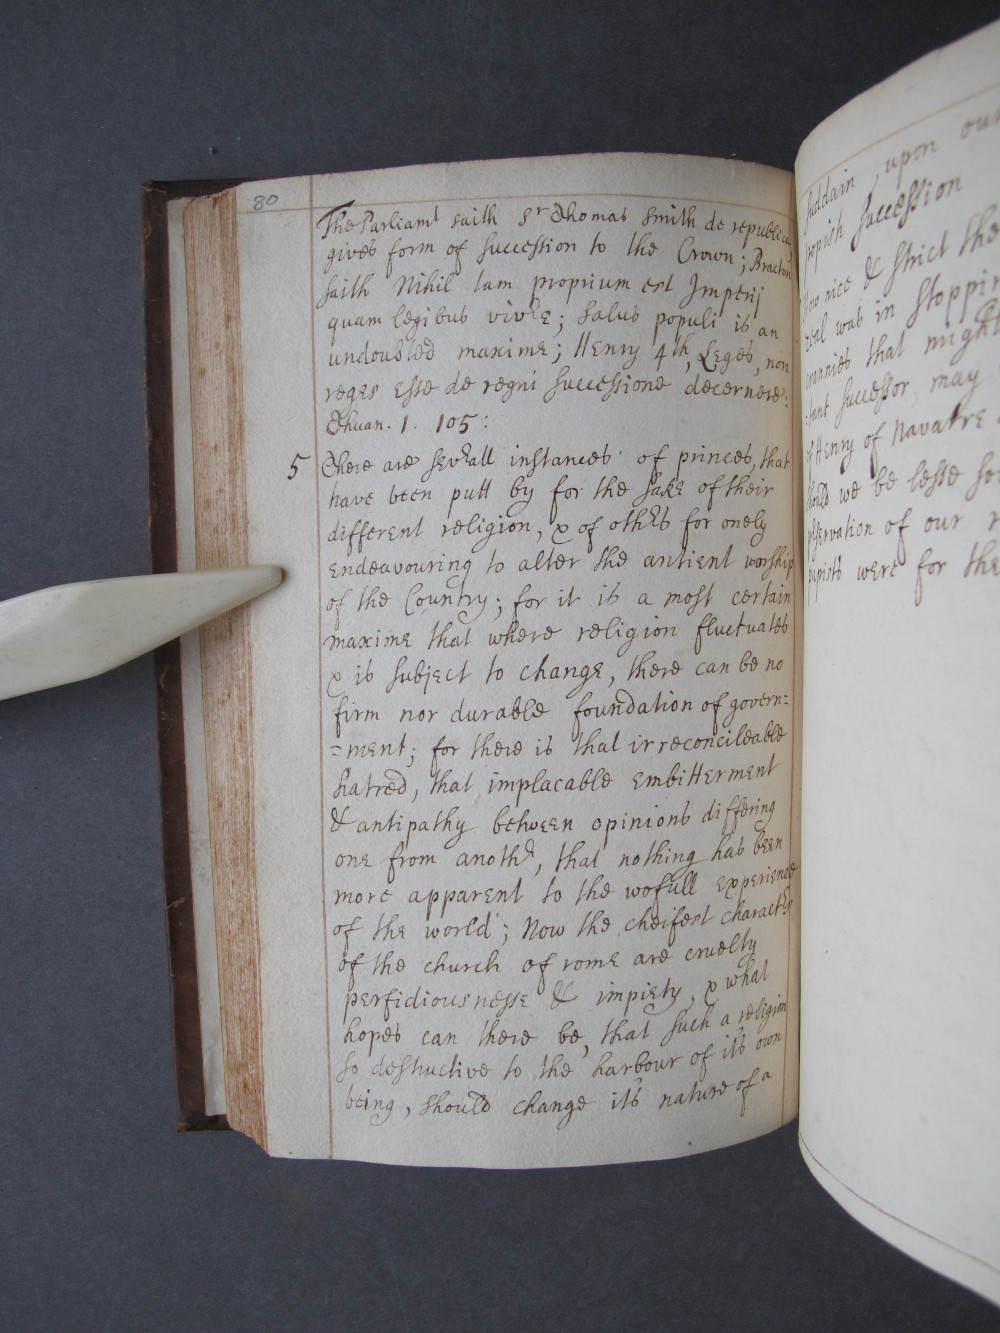 80
The Parliamt saith Sr Thomas Smith de republica
gives form of succession to the Crown; Bracton
saith Nihil tam proprium est Imperij
quam legibus vivere; Salus populi is an
undoubted maxime; Henry 4th, Leges, non
reges esse de regni successione decernere:
Thuan. 1. 105:
5 There are severall instances of princes, that
have been putt by for the sake of their
different religion, & of others for onely
endeavouring to alter the antient worship
of the Country; for it is a most certain
maxime that where religion fluctuates
& is subject to change, there can be no
firm nor durable foundation of govern=
=ment; for there is that irreconcileable
hatred, that implacable embitterment
& antipathy between opinions differing
one from another, that nothing has been
more apparent to the wofull experience
of the world; Now the cheifest characters
of the church of rome are cruelty
perfidiousnesse & impiety, & what
hopes can there be, that such a religion
so destructive to the harbour of it's own
being, should change it's nature of a
suddain, upon our
popish succession
How nice & strict the
zeal was in stoppin
that might
successor, may
of Henry of Navarre
should we be lesse
preservation of our
papists were for the